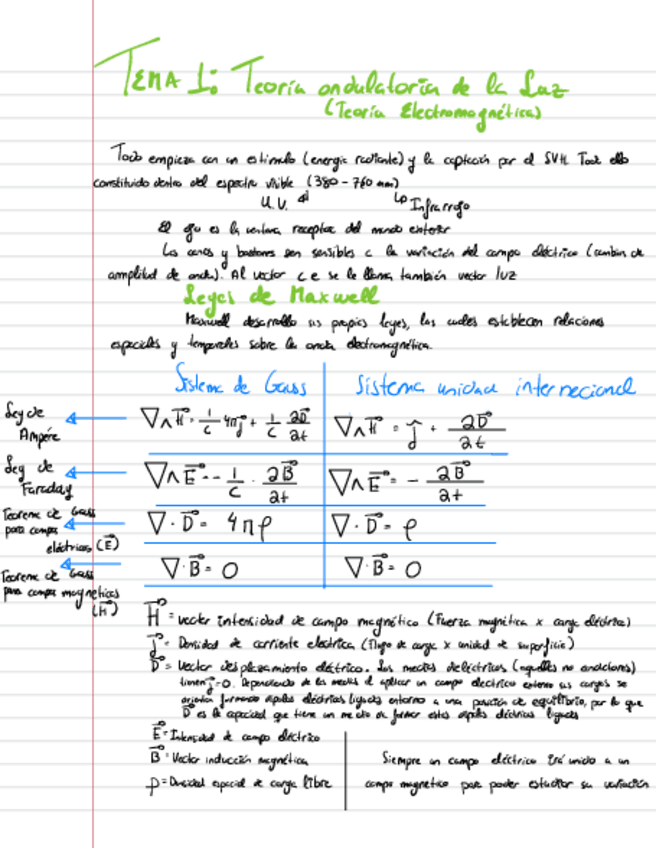 TEMA 1: Teoría ondulatoria de la Luz
(Teoría Electromagnética)
Todo empieza con un estímulo (energía radiante) y la captación por el SVH. Todo ello
constituido dentro del espectro visible (380 - 760 nm)
U.V. Infrarrojo
El ojo es la ventana receptor del mundo exterior
Los conos y bastones son sensibles a la variación del campo eléctrico (cambian de
amplitud de onda). Al vector c e se le llama también vector luz
Leyes de Maxwell
Maxwell desarrollo sus propias leyes, las cuales establecen relaciones
espaciales y temporales sobre la onda electromagnética.
Sistema de Gauss Sistema unidad internacional
Ley de Ampére ∇∧H⃗ = 1/c 4πj⃗ + 1/c ∂D⃗/∂t ∇∧H⃗ = j⃗ + ∂D⃗/∂t
Ley de Faraday ∇∧E⃗ = - 1/c · ∂B⃗/∂t ∇∧E⃗ = - ∂B⃗/∂t
Teorema de Gauss para campos eléctricos (E⃗) ∇·D⃗ = 4πρ ∇·D⃗ = ρ
Teorema de Gauss para campos magnéticos (H⃗) ∇·B⃗ = 0 ∇·B⃗ = 0
H⃗ = vector intensidad de campo magnético (Fuerza magnética x carga eléctrica)
j⃗ = Densidad de corriente electrica (Flujo de carga x unidad de superficie)
D⃗ = Vector desplazamiento eléctrico. Los medios dieléctricos (aquellos no conductores)
tienen j⃗=0. Dependiendo de los medios al aplicar un campo electrico externo sus cargas se
orientan formando dipolos eléctricos ligados entorno a una posición de equilibrio, por lo que
D⃗ es la capacidad que tiene un medio de formar estos dipolos eléctricos ligados
E⃗ = Intensidad de campo eléctrico
B⃗ = Vector inducción magnética
ρ = Densidad espacial de carga libre
Siempre un campo eléctrico irá unido a un
campo magnetico para poder estudiar su variación